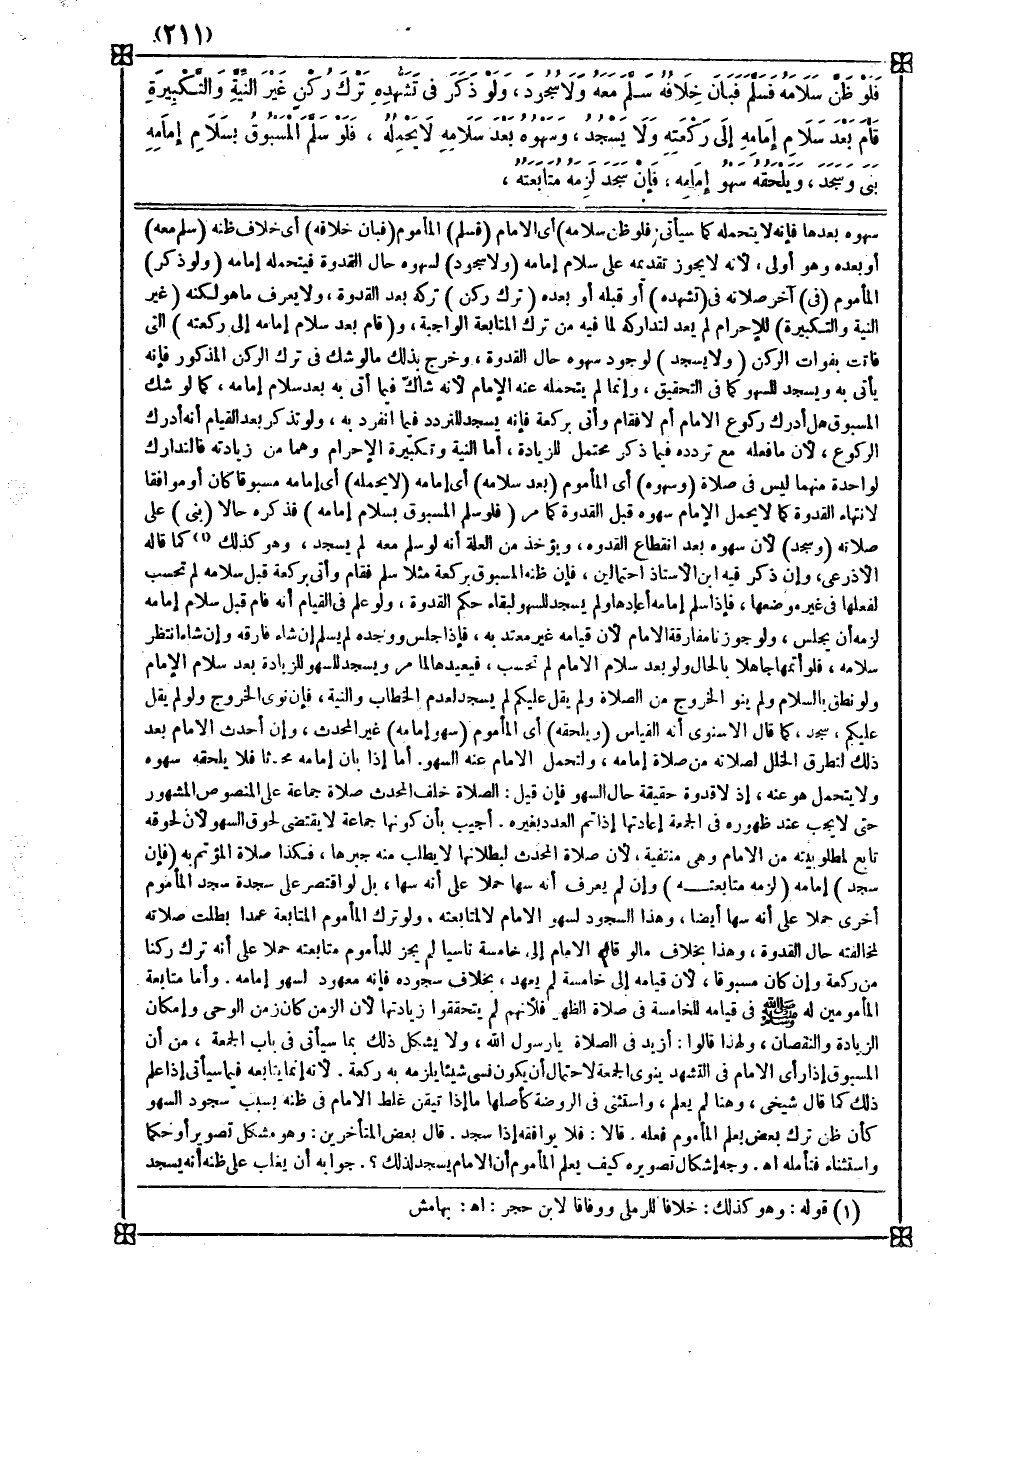 (٢١١)
فَلَوْ ظَنَّ سَلَامَهُ فَسَلَّمَ فَبَانَ خِلَافُهُ سَلَّمَ مَعَهُ وَلَا سُجُودَ ، وَلَوْ ذَكَرَ فِى تَشَهُّدِهِ تَرْكَ رُكْنٍ غَيْرَ النِّيَّةِ وَالتَّكْبِيرَةِ
قَامَ بَعْدَ سَلَامِ إِمَامِهِ إِلَى رَكْعَتِهِ وَلَا يَسْجُدُ ، وَسَهْوُهُ بَعْدَ سَلَامِهِ لَا يَحْمِلُهُ ، فَلَوْ سَلَّمَ الْمَسْبُوقُ بِسَلَامِ إِمَامِهِ
بَنَى وَسَجَدَ ، وَيَلْحَقُهُ سَهْوُ إِمَامِهِ ، فَإِنْ سَجَدَ لَزِمَهُ مُتَابَعَتُهُ ،
سهوه بعدها فإنه لا يتحمله كما سيأتى ; فلو ظن سلامه) أى الامام (فسلم) المأموم (فبان خلافه) أى خلاف ظنه (سلم معه)
أو بعده وهو أولى ، لأنه لا يجوز تقديمه على سلام إمامه (ولا سجود) لسهوه حال القدوة فيتحمله إمامه (ولو ذكر)
المأموم (فى) آخر صلاته فى (تشهده) أو قبله أو بعده (ترك ركن) تركه بعد القدوة ، ولا يعرف ما هو لكنه (غير
النية والتكبيرة) للإحرام لم يعد لتداركه لما فيه من ترك المتابعة الواجبة ، و(قام بعد سلام إمامه إلى ركعته) التى
فاتت بفوات الركن (ولا يسجد) لوجود سهوه حال القدوة ، وخرج بذلك ما لو شك فى ترك الركن المذكور فإنه
يأتى به ويسجد للسهو كما فى التحقيق ، وإنما لم يتحمله عنه الإمام لأنه شاكّ فيما أتى به بعد سلام إمامه ، كما لو شك
المسبوق هل أدرك ركوع الامام أم لا فقام وأتى بركعة فإنه يسجد للتردد فيما انفرد به ، ولو تذكر بعد القيام أنه أدرك
الركوع ، لأن ما فعله مع تردده فيما ذكر محتمل للزيادة ، أما النية وتكبيرة الإحرام وهما من زيادته فالتدارك
لواحدة منهما ليس فى صلاة (وسهوه) أى المأموم (بعد سلامه) أى إمامه (لا يحمله) أى إمامه مسبوقا كان أو موافقا
لانتهاء القدوة كما لا يحمل الإمام سهوه قبل القدوة كما مر (فلو سلم المسبوق بسلام إمامه) فذكره حالا (بنى) على
صلاته (وسجد) لأن سهوه بعد انقطاع القدوه ، ويؤخذ من العلة أنه لو سلم معه لم يسجد ، وهو كذلك (١) كما قاله
الأذرعى، وإن ذكر فيه ابن الاستاذ احتمالين ، فإن ظنه المسبوق بركعة مثلا سلم فقام وأتى بركعة قبل سلامه لم تحسب
لفعلها فى غير موضعها ، فإذا سلم إمامه أعادها ولم يسجد للسهو لبقاء حكم القدوة ، ولو علم فى القيام أنه قام قبل سلام إمامه
لزمه أن يجلس ، ولو جوزنا مفارقة الامام لأن قيامه غير معتد به ، فإذا جلس ووجده لم يسلم إن شاء فارقه وإن شاء انتظر
سلامه ، فلو أتمها جاهلا بالحال ولو بعد سلام الامام لم تحسب ، فيعيدها لما مر ويسجد للسهو للزيادة بعد سلام الإمام
ولو نطق بالسلام ولم ينو الخروج من الصلاة ولم يقل عليكم لم يسجد لعدم الخطاب والنية ، فإن نوى الخروج ولو لم يقل
عليكم ، سجد ، كما قال الاسنوى أنه القياس (ويلحقه) أى المأموم (سهو إمامه) غير المحدث ، وإن أحدث الامام بعد
ذلك لتطرق الخلل لصلاته من صلاة إمامه ، ولتحمل الامام عنه السهو. أما إذا بان إمامه محدثا فلا يلحقه سهوه
ولا يتحمل هو عنه ، إذ لا قدوة حقيقة حال السهو فإن قيل : الصلاة خلف المحدث صلاة جماعة على المنصوص المشهور
حتى لا يجب عند ظهوره فى الجمعة إعادتها إذا تم العدد بغيره . أجيب بأن كونها جماعة لا يقتضى لحوق السهو لأن لحوقه
تابع لمطلوبيته من الامام وهى منتفية ، لأن صلاة المحدث لبطلانها لا يطلب منه جبرها ، فكذا صلاة المؤتم به (فإن
سجد) إمامه (لزمه متابعتـــه) وإن لم يعرف أنه سها حملا على أنه سها ، بل لو اقتصر على سجدة سجد المأموم
أخرى حملا على أنه سها أيضا ، وهذا السجود لسهو الامام لا لمتابعته . ولو ترك المأموم المتابعة عمدا بطلت صلاته
لمخالفته حال القدوة ، وهذا بخلاف مالو قام الامام إلى خامسة ناسيا لم يجز للمأموم متابعته حملا على أنه ترك ركنا
من ركعة وإن كان مسبوقا ، لأن قيامه إلى خامسة لم يعهد ، بخلاف سجوده فإنه معهود لسهو إمامه . وأما متابعة
المأمومين له ﷺ فى قيامه للخامسة فى صلاة الظهر فلأنهم لم يتحققوا زيادتها لأن الزمن كان زمن الوحى وإمكان
الزيادة والنقصان ، ولهذا قالوا : أزيد فى الصلاة يا رسول الله ، ولا يشكل ذلك بما سيأتى فى باب الجمعة ، من أن
المسبوق إذا رأى الامام فى التشهد ينوى الجمعة لاحتمال أن يكون نسى شيئا يلزمه به ركعة . لأنه إنما يتابعه فيما سيأتى إذا علم
ذلك كما قال شيخى ، وهنا لم يعلم ، واستثنى فى الروضة كأصلها ما إذا تيقن غلط الامام فى ظنه بسبب سجود السهو
كأن ظن ترك بعض يعلم المأموم فعله . قالا : فلا يوافقه إذا سجد . قال بعض المتأخرين : وهو مشكل تصويرا وحكما
واستثناء فتأمله اه . وجه إشكال تصويره كيف يعلم المأموم أن الامام يسجد لذلك ؟ . جوابه أن يغلب على ظنه أنه يسجد
(١) قوله : وهو كذلك : خلافا للرملى ووفاقا لابن حجر : اه : بهامش